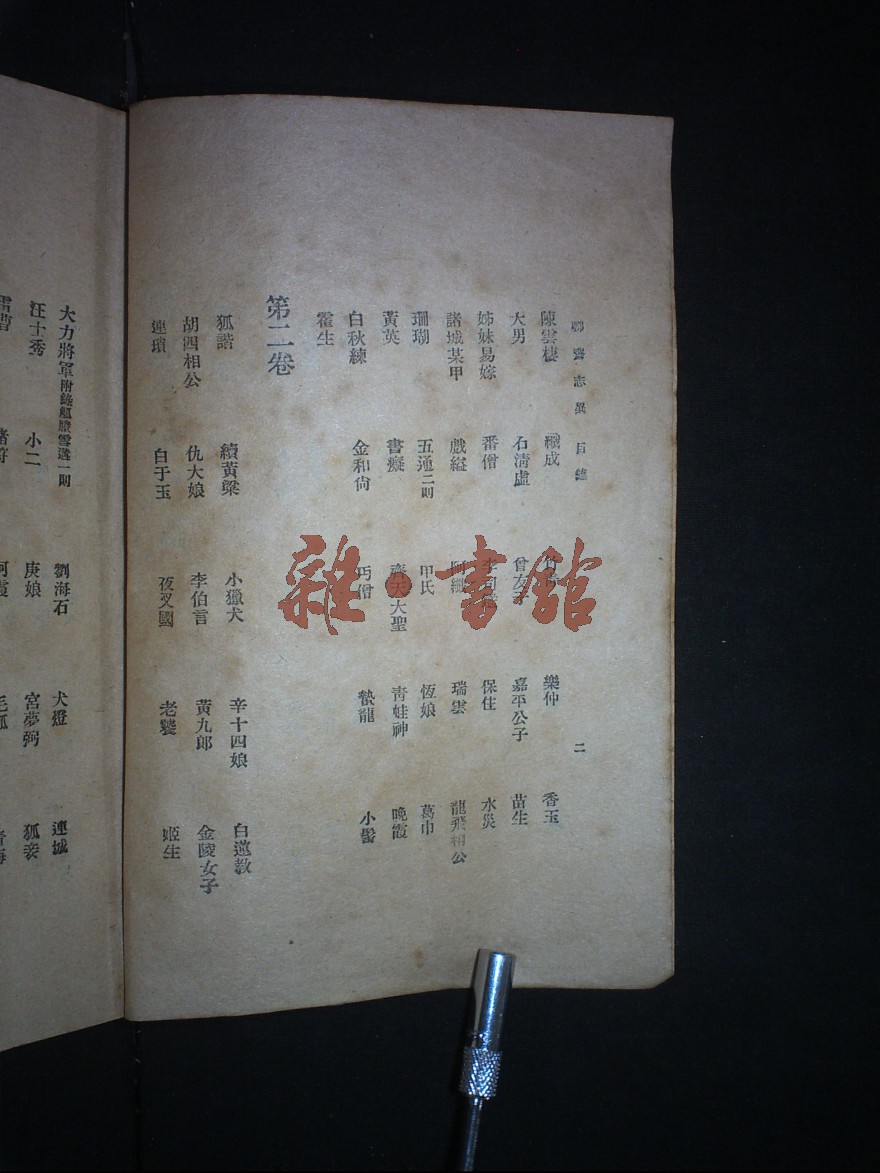 聊齋志異目錄 二
陳雲棲 織成 竹青 樂仲 香玉
大男 石清虛 曾友于 嘉平公子 苗生
姊妹易嫁 番僧 李司鑑 保住 水災
諸城某甲 戲縊 阿纖 瑞雲 龍飛相公
珊瑚 五通二則 甲氏 恆娘 葛巾
黃英 書癡 齊天大聖 青蛙神 晚霞
白秋練 金和尚 丐僧 蟄龍 小髻
霍生
第二卷
狐諧 續黃粱 小獵犬 辛十四娘 白蓮教
胡四相公 仇大娘 李伯言 黃九郎 金陵女子
連瑣 白于玉 夜叉國 老饕 姬生
大力將軍附錄觚賸雪遘一則 劉海石 犬燈 連城
汪士秀 小二 庚娘 宮夢弼 狐妾
雜·書館